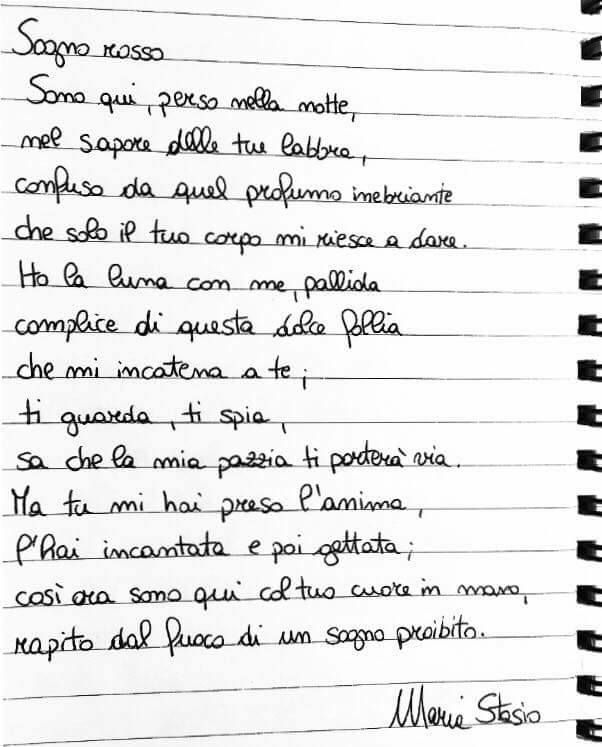 Sogno rosso
Sono qui, perso nella notte,
nel sapore delle tue labbra,
confuso da quel profumo inebriante
che solo il tuo corpo mi riesce a dare.
Ho la luna con me, pallida
complice di questa dolce follia
che mi incatena a te;
ti guarda, ti spia,
sa che la mia pazzia ti porterà via.
Ma tu mi hai preso l'anima,
l'hai incantata e poi gettata;
così ora sono qui col tuo cuore in mano,
rapito dal fuoco di un sogno proibito.
Maria Stasio